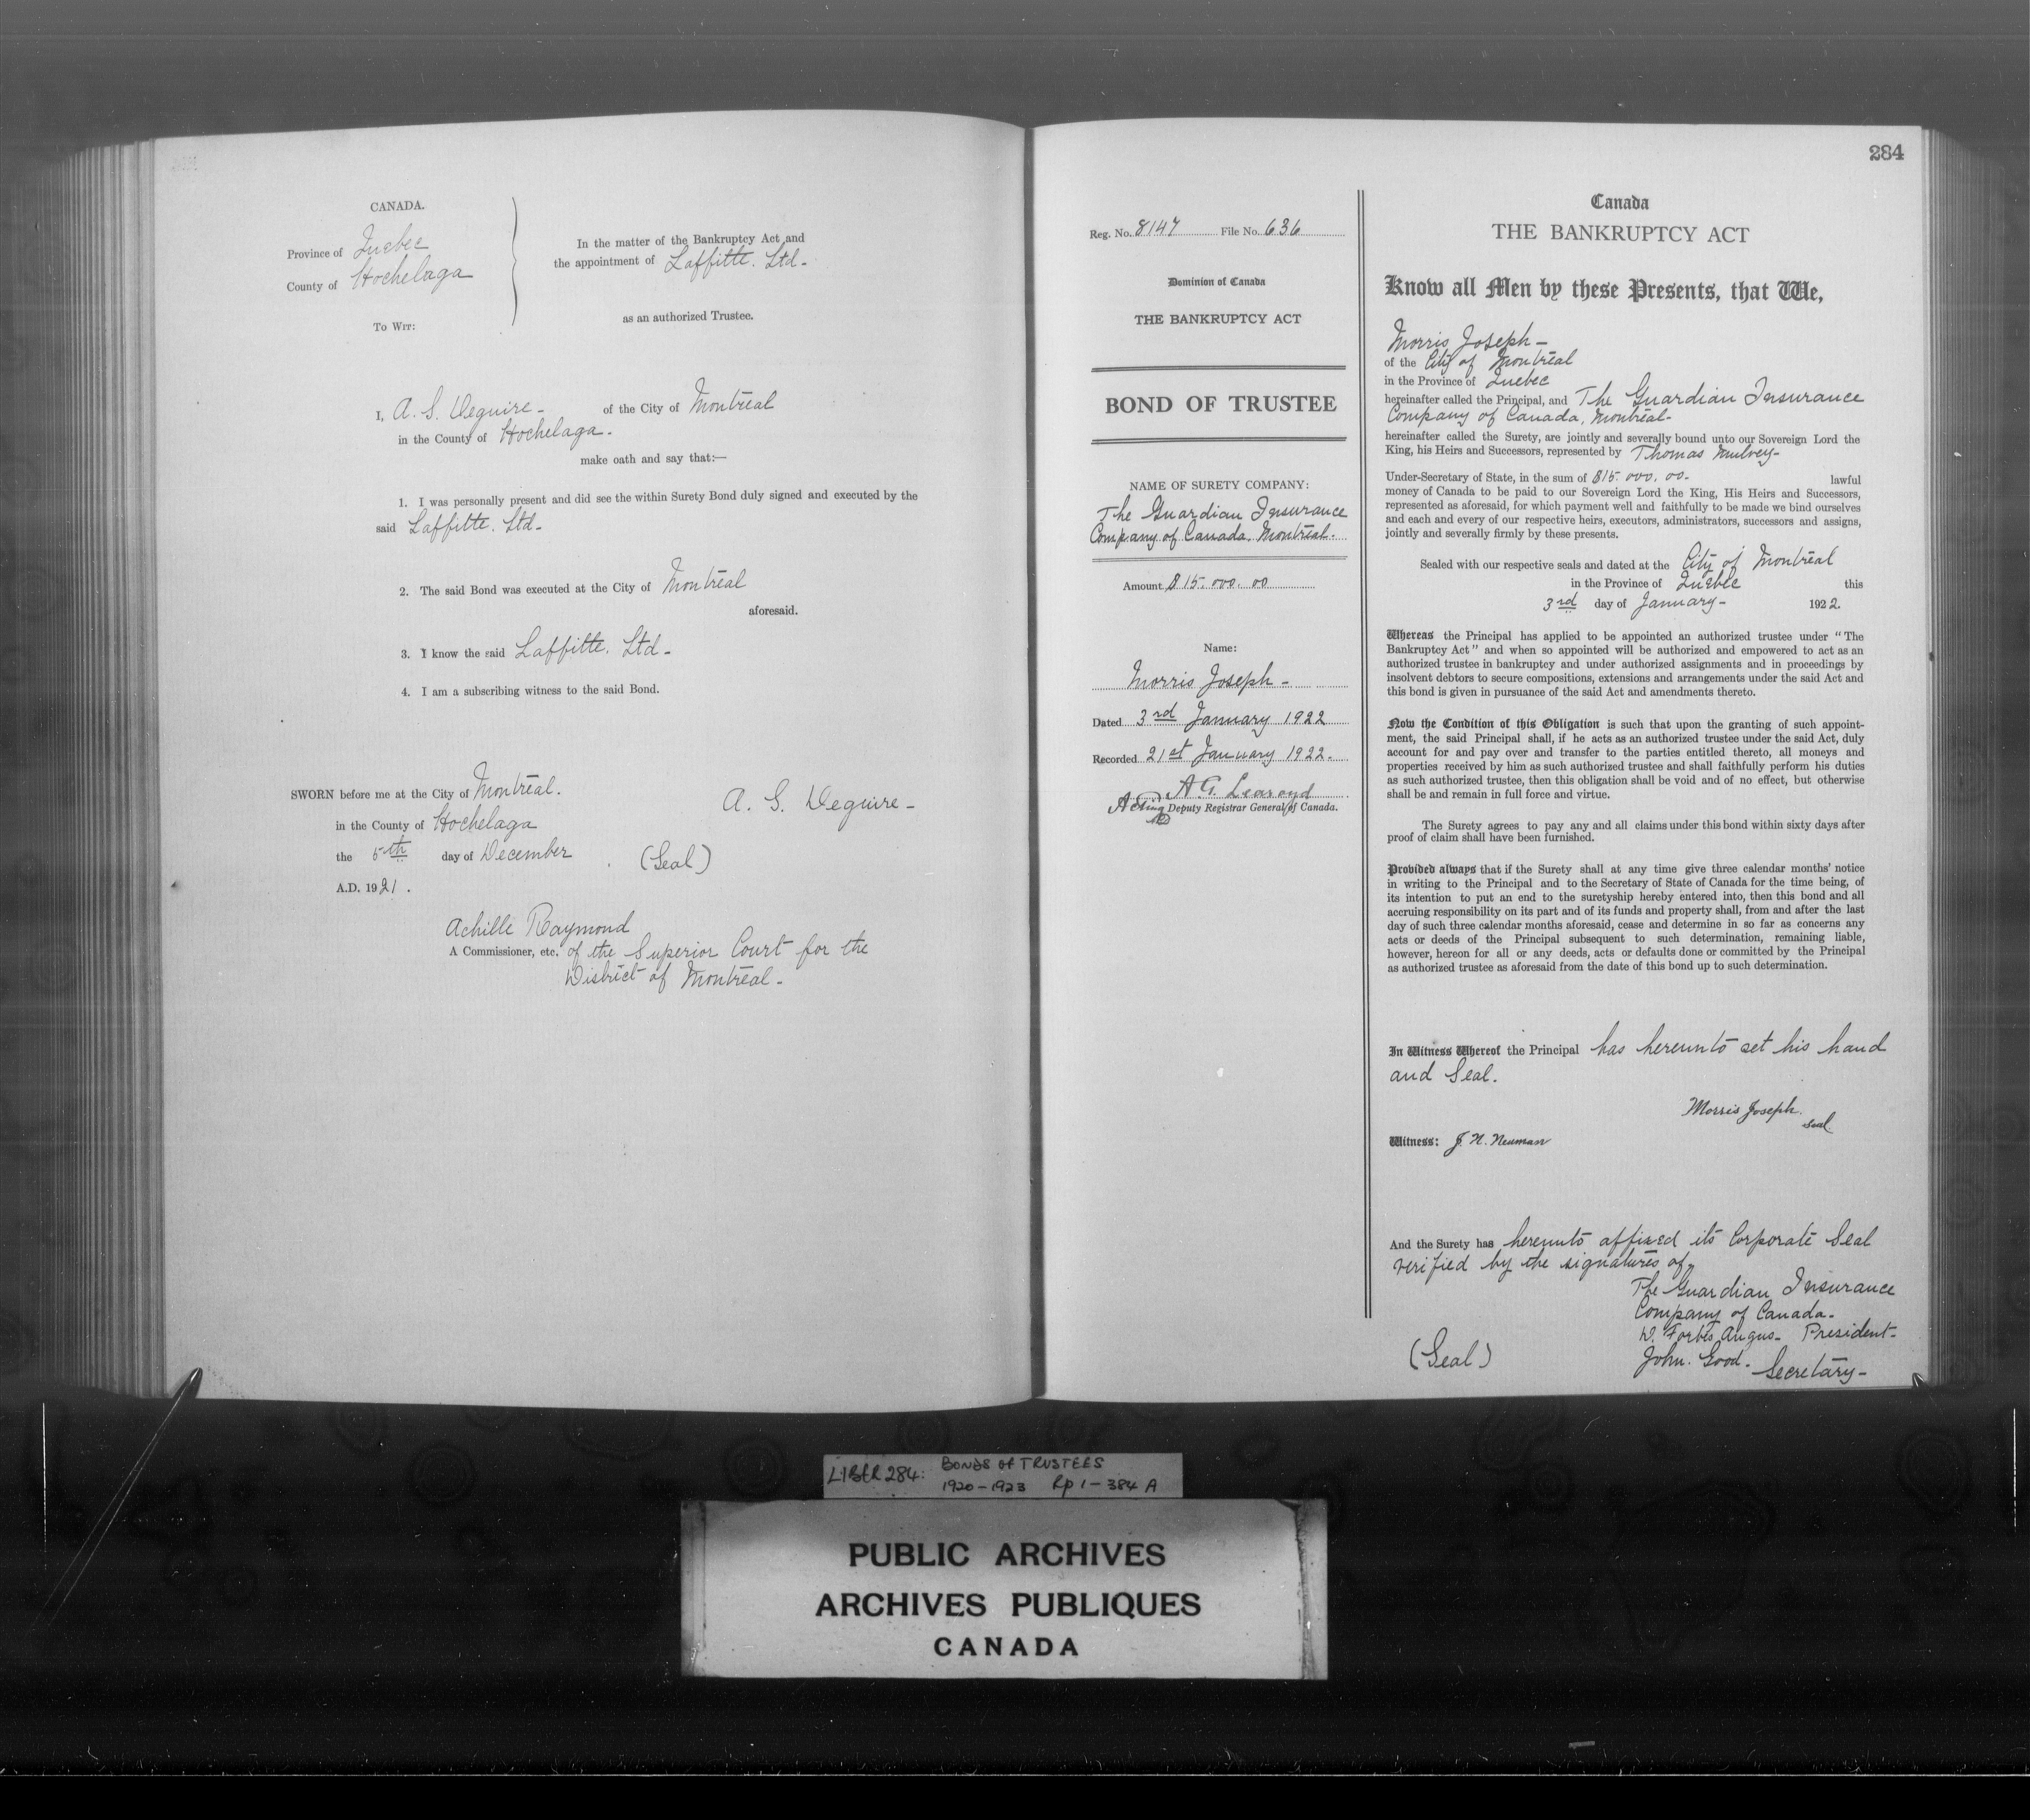 CANADA.
Province of Quebec
County of Hochelaga
To Wit:
In the matter of the Bankruptcy Act and
the appointment of Laffitte. Ltd-
as an authorized Trustee.
I, A. S. Deguire- of the City of Montreal
in the County of Hochelaga-
make oath and say that:—
1. I was personally present and did see the within Surety Bond duly signed and executed by the
said Laffitte. Ltd-
2. The said Bond was executed at the City of Montreal
aforesaid.
3. I know the said Laffitte. Ltd-
4. I am a subscribing witness to the said Bond.
SWORN before me at the City of Montreal.
in the County of Hochelaga
the 5th day of December
A.D. 1921.
A. S. Deguire-
(Seal)
Achille Raymond
A Commissioner, etc. of the Superior Court for the
District of Montreal-
284
Reg. No. 8147 File No. 636
Dominion of Canada
THE BANKRUPTCY ACT
BOND OF TRUSTEE
NAME OF SURETY COMPANY:
The Guardian Insurance
Company of Canada, Montreal-
Amount $15.000.00
Name:
Morris Joseph-
Dated 3rd January 1922
Recorded 21st January 1922.
A G Learoyd
Acting Deputy Registrar General of Canada.
Canada
THE BANKRUPTCY ACT
Know all Men by these Presents, that We,
Morris Joseph-
of the City of Montreal
in the Province of Quebec
hereinafter called the Principal, and The Guardian Insurance
Company of Canada, Montreal-
hereinafter called the Surety, are jointly and severally bound unto our Sovereign Lord the
King, his Heirs and Successors, represented by Thomas Mulvey-
Under-Secretary of State, in the sum of $15.000.00- lawful
money of Canada to be paid to our Sovereign Lord the King, His Heirs and Successors,
represented as aforesaid, for which payment well and faithfully to be made we bind ourselves
and each and every of our respective heirs, executors, administrators, successors and assigns,
jointly and severally firmly by these presents.
Sealed with our respective seals and dated at the City of Montreal
in the Province of Quebec this
3rd day of January- 1922.
Whereas the Principal has applied to be appointed an authorized trustee under "The
Bankruptcy Act" and when so appointed will be authorized and empowered to act as an
authorized trustee in bankruptcy and under authorized assignments and in proceedings by
insolvent debtors to secure compositions, extensions and arrangements under the said Act and
this bond is given in pursuance of the said Act and amendments thereto.
Now the Condition of this Obligation is such that upon the granting of such appoint-
ment, the said Principal shall, if he acts as an authorized trustee under the said Act, duly
account for and pay over and transfer to the parties entitled thereto, all moneys and
properties received by him as such authorized trustee and shall faithfully perform his duties
as such authorized trustee, then this obligation shall be void and of no effect, but otherwise
shall be and remain in full force and virtue.
The Surety agrees to pay any and all claims under this bond within sixty days after
proof of claim shall have been furnished.
Provided always that if the Surety shall at any time give three calendar months' notice
in writing to the Principal and to the Secretary of State of Canada for the time being, of
its intention to put an end to the suretyship hereby entered into, then this bond and all
accruing responsibility on its part and of its funds and property shall, from and after the last
day of such three calendar months aforesaid, cease and determine in so far as concerns any
acts or deeds of the Principal subsequent to such determination, remaining liable,
however, hereon for all or any deeds, acts or defaults done or committed by the Principal
as authorized trustee as aforesaid from the date of this bond up to such determination.
In Witness Whereof the Principal has hereunto set his hand
and Seal.
Morris Joseph.
seal
Witness: J. N. Neuman
And the Surety has hereunto affixed its Corporate Seal
verified by the signatures of,
The Guardian Insurance
Company of Canada-
D. Forbes Angus- President-
(Seal) John. Good- Secretary-
LIBER 284: BONDS OF TRUSTEES
1920-1923 Pp 1-384 A
PUBLIC ARCHIVES
ARCHIVES PUBLIQUES
CANADA